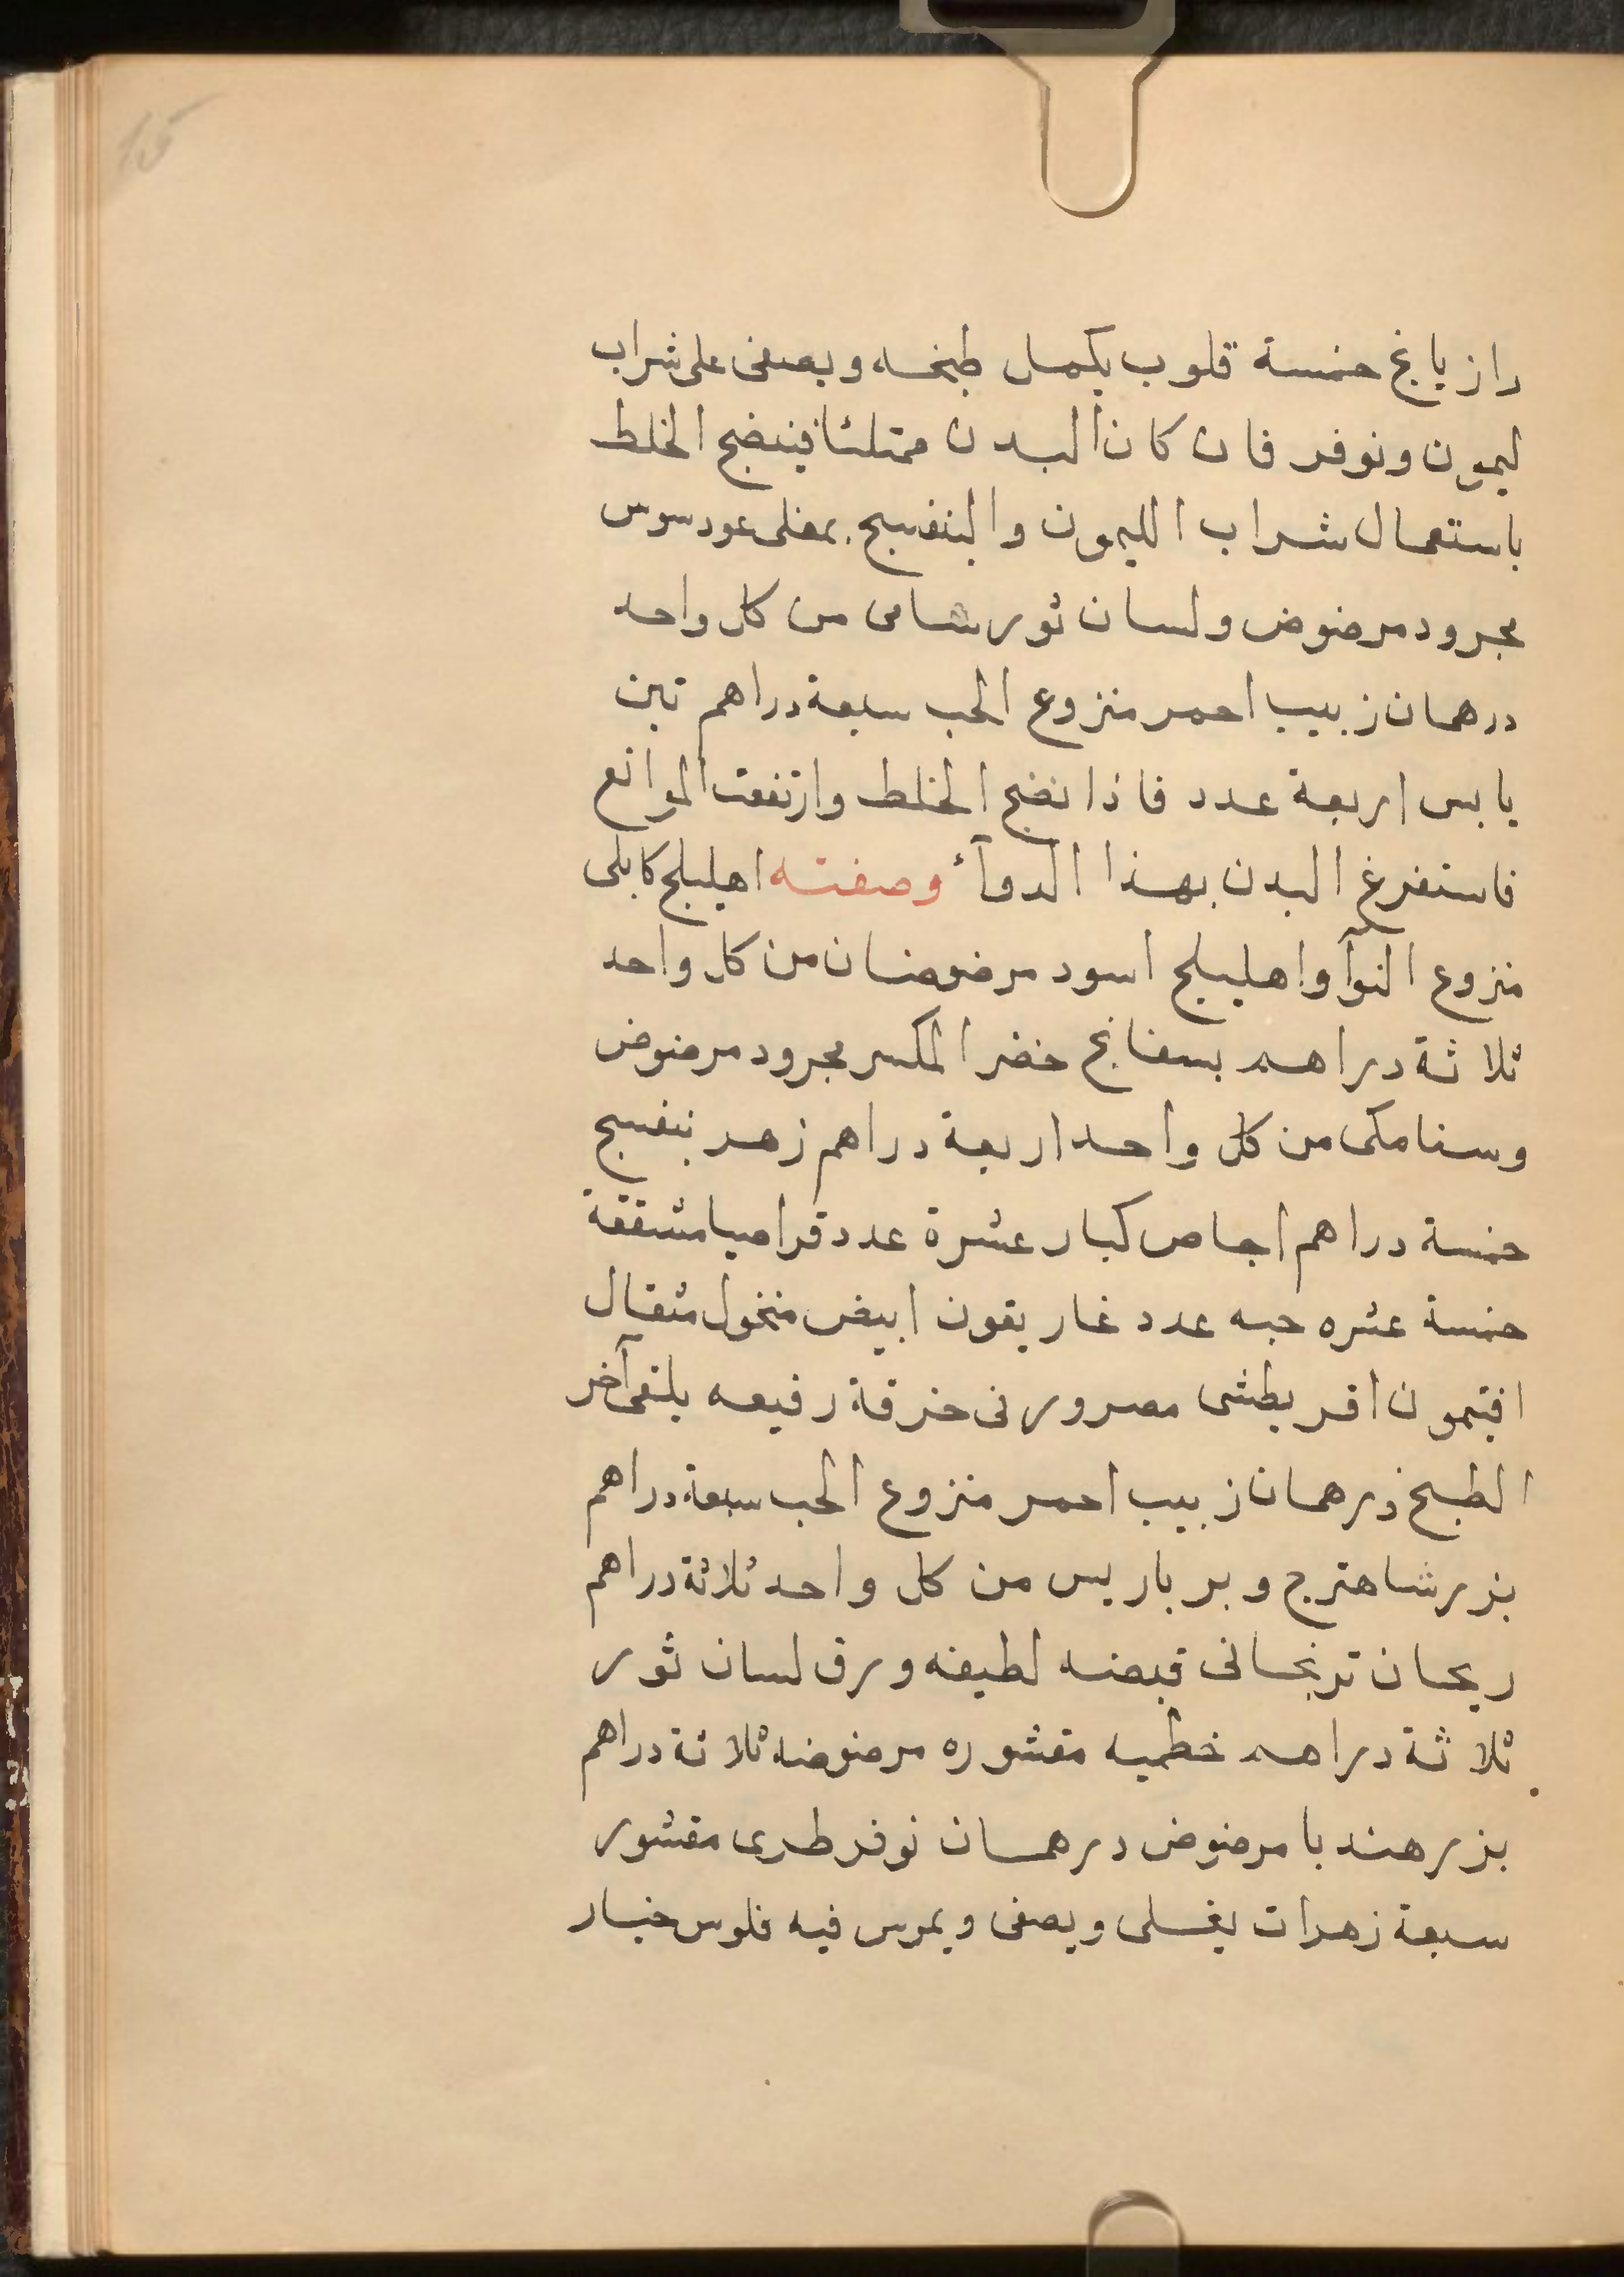 15
رازيانج خمسة قلوب يكمل طبخه ويصفى على شراب
ليمون ونوفر فان كان البدن ممتلئا فينضج الخلط
باستعمال شراب الليمون والبنفسج بمغلى عود سوس
مجرود مرضوض ولسان ثور شامى من كل واحد
درهمان زبيب احمر منزوع الحب سبعة دراهم تين
يابس اربعة عدد فاذا نضج الخلط وارتفعت الموانع
فاستفرغ البدن بهذا الدوآء وصفته اهليلج كابلى
منزوع النوآ واهليلج اسود مرضوضان من كل واحد
ثلاثة دراهم بسفانج خضر المكسر مجرود مرضوض
وسنا مكى من كل واحد اربعة دراهم زهر بنفسج
خمسة دراهم اجاص كبار عشرة عدد قراصيا مشققة
خمسة عشره حبه عدد غاريقون ابيض منخول مثقال
افتيمون اقريطشى مصرور فى خرقة رفيعه يلقى آخر
الطبخ درهمان زبيب احمر منزوع الحب سبعة دراهم
بزر شاهترج وبرباريس من كل واحد ثلاثة دراهم
ريحان ترنجانى قبضه لطيفه ورق لسان ثور
ثلاثة دراهم خطميه مقشوره مرضوضه ثلاثة دراهم
بزر هندبا مرضوض درهمان نوفر طرى مقشور
سبعة زهرات يغلى ويصفى ويمرس فيه فلوس خيار